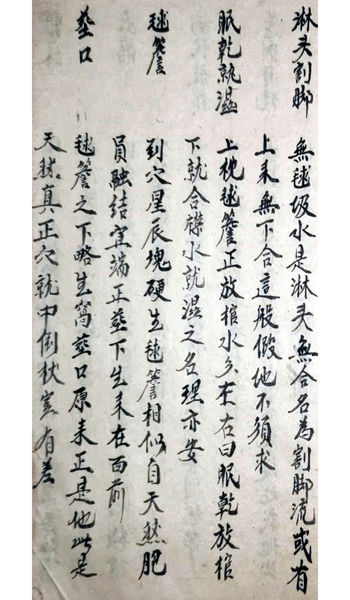 淋头割脚 無毬圾水是淋头無合名為割脚流或有
上来無下合這般假地不須求
眠乾就湿 上枕毬簷正放棺水分左右曰眠乾放棺
下就合襟水就湿之名理亦安
毬簷 到穴星辰塊硬生毬簷相似自天然肥
員融結宜端正塟下生来在面前
塟口 毬簷之下略生窩塟口原来正是他此是
天然真正穴就中倒杖豈有差